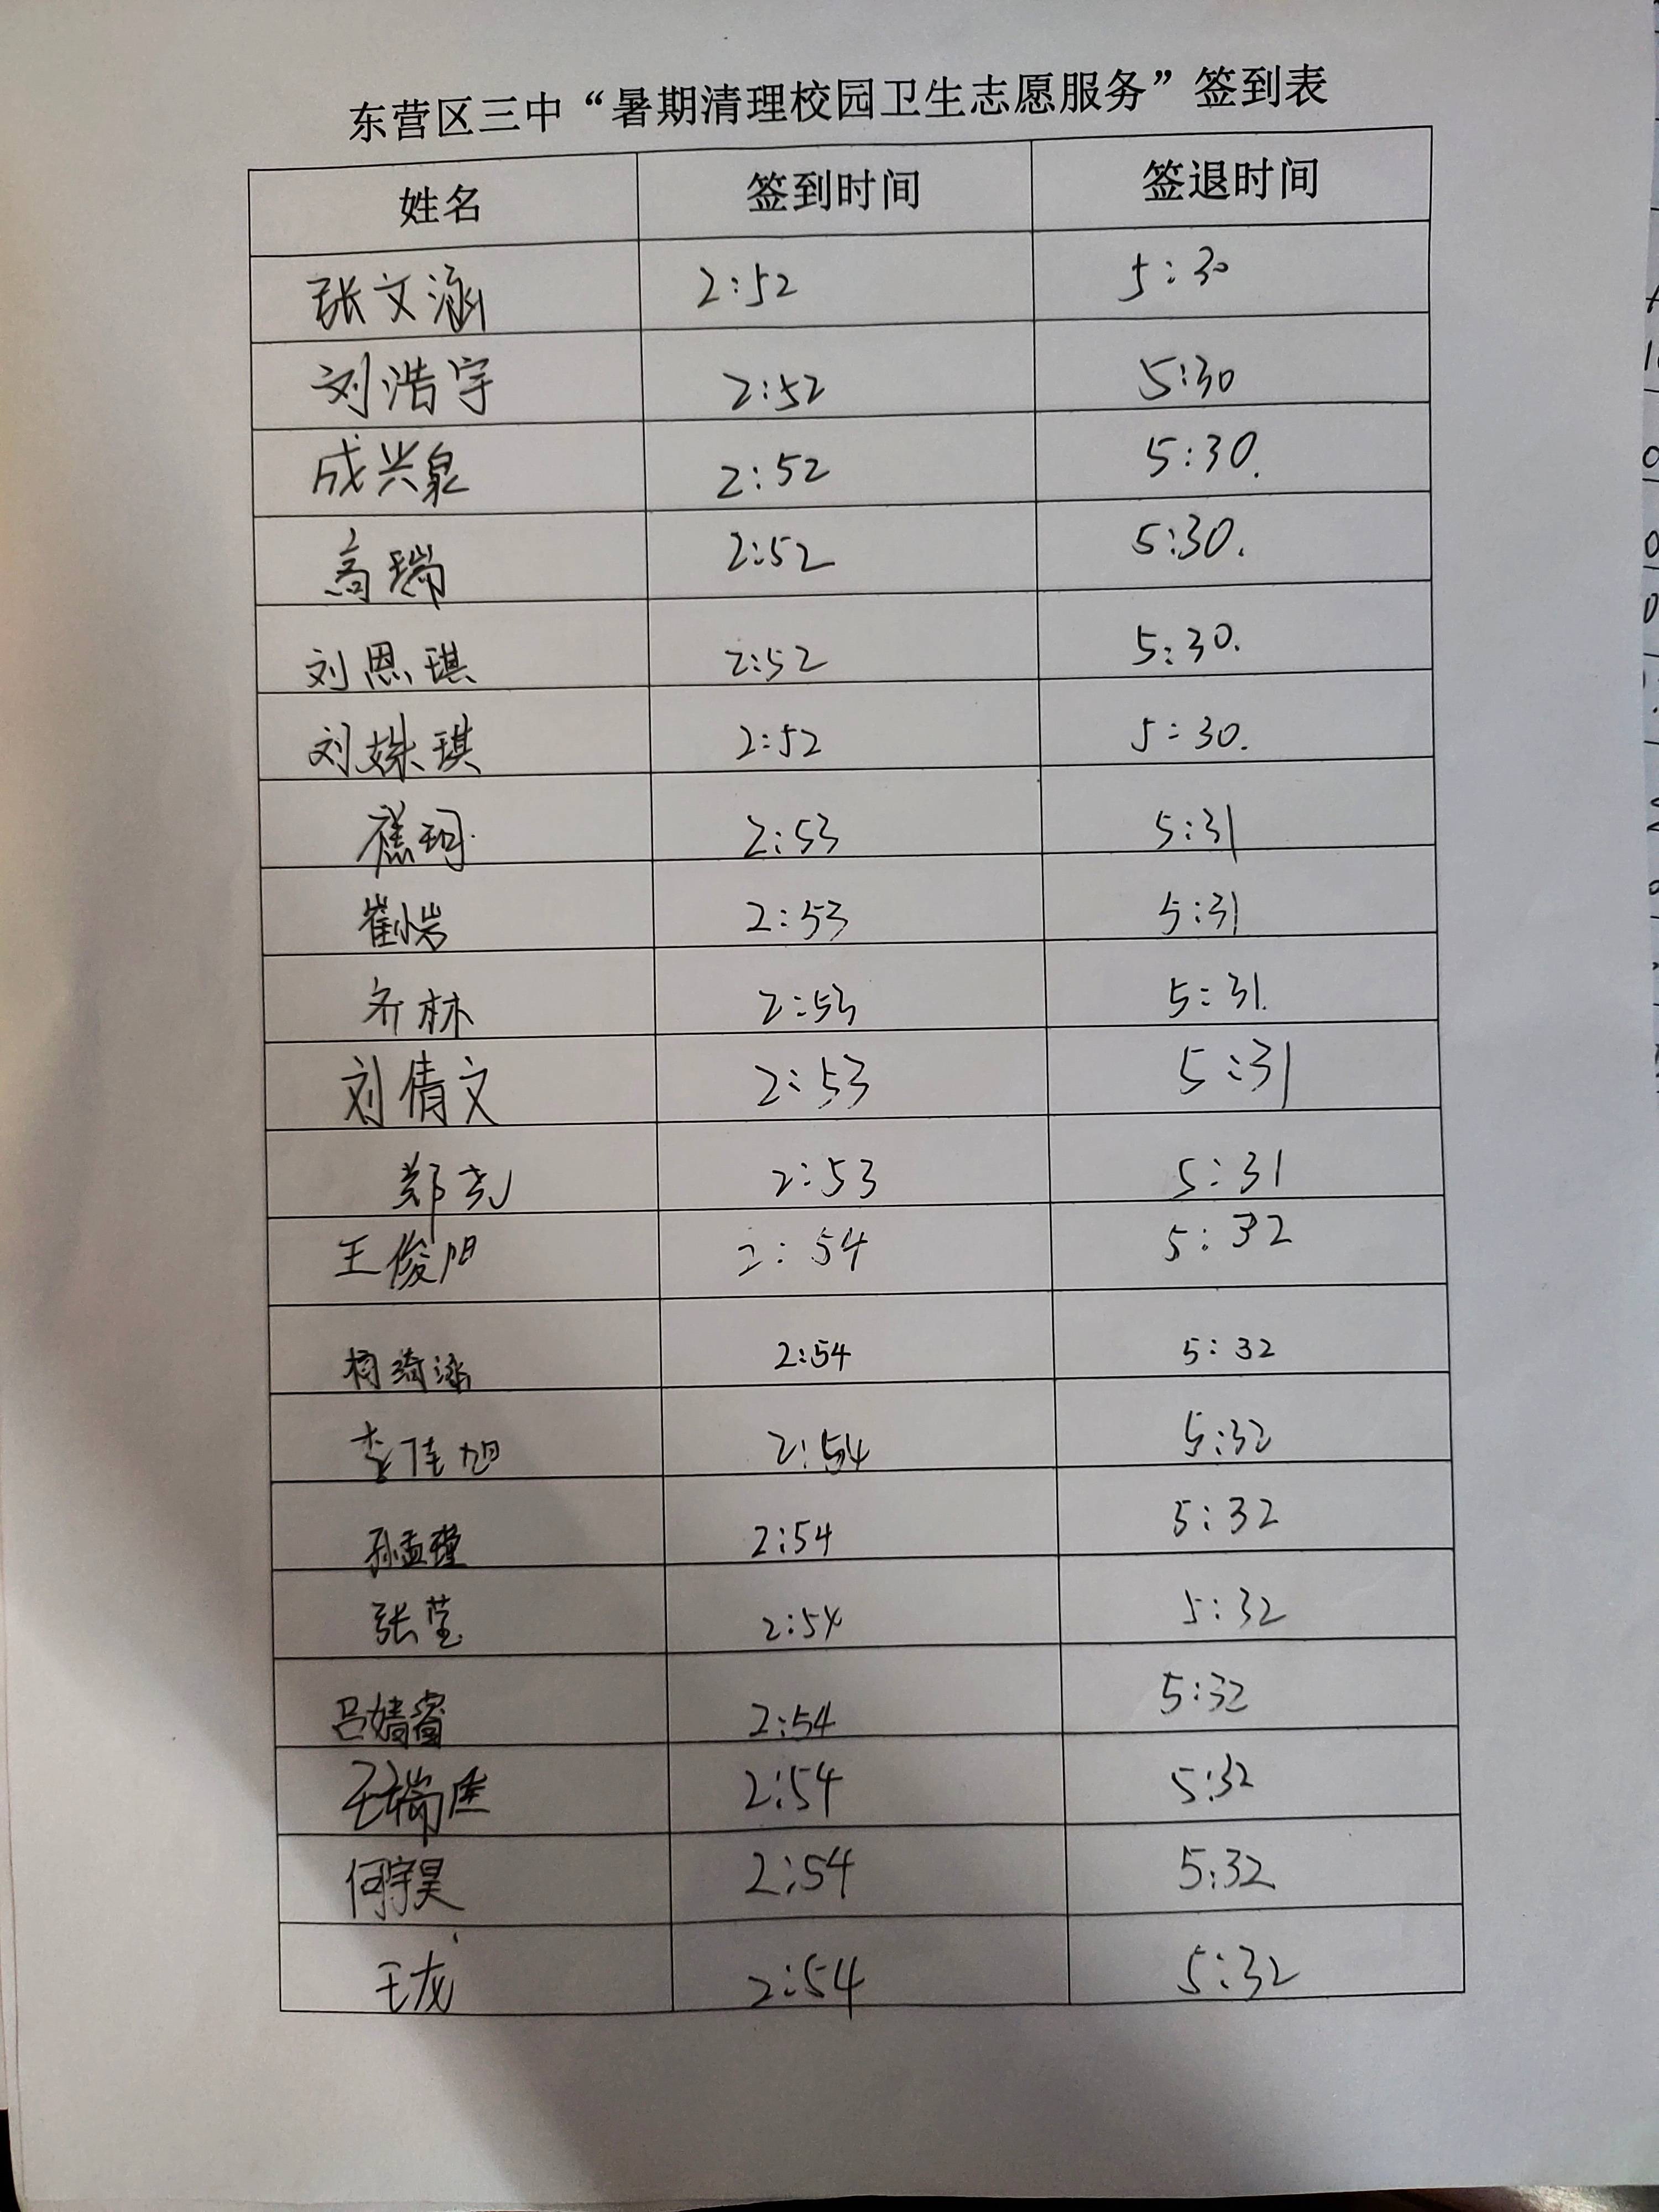 东营区三中“暑期清理校园卫生志愿服务”签到表
姓名 签到时间 签退时间
张文涵 2:52 5:30
刘浩宇 2:52 5:30
成兴泉 2:52 5:30.
高瑞 2:52 5:30.
刘恩琪 2:52 5:30.
刘姝琪 2:52 5:30.
2:53 5:31
崔岩 2:53 5:31
齐林 2:53 5:31.
刘倩文 2:53 5:31
郑尧 2:53 5:31
王俊旭 2:54 5:32
2:54 5:32
李佳旭 2:54 5:32
孙孟瑾 2:54 5:32
张莹 2:54 5:32
吕婧睿 2:54 5:32
王瑞 2:54 5:32
何宇昊 2:54 5:32
王龙 2:54 5:32